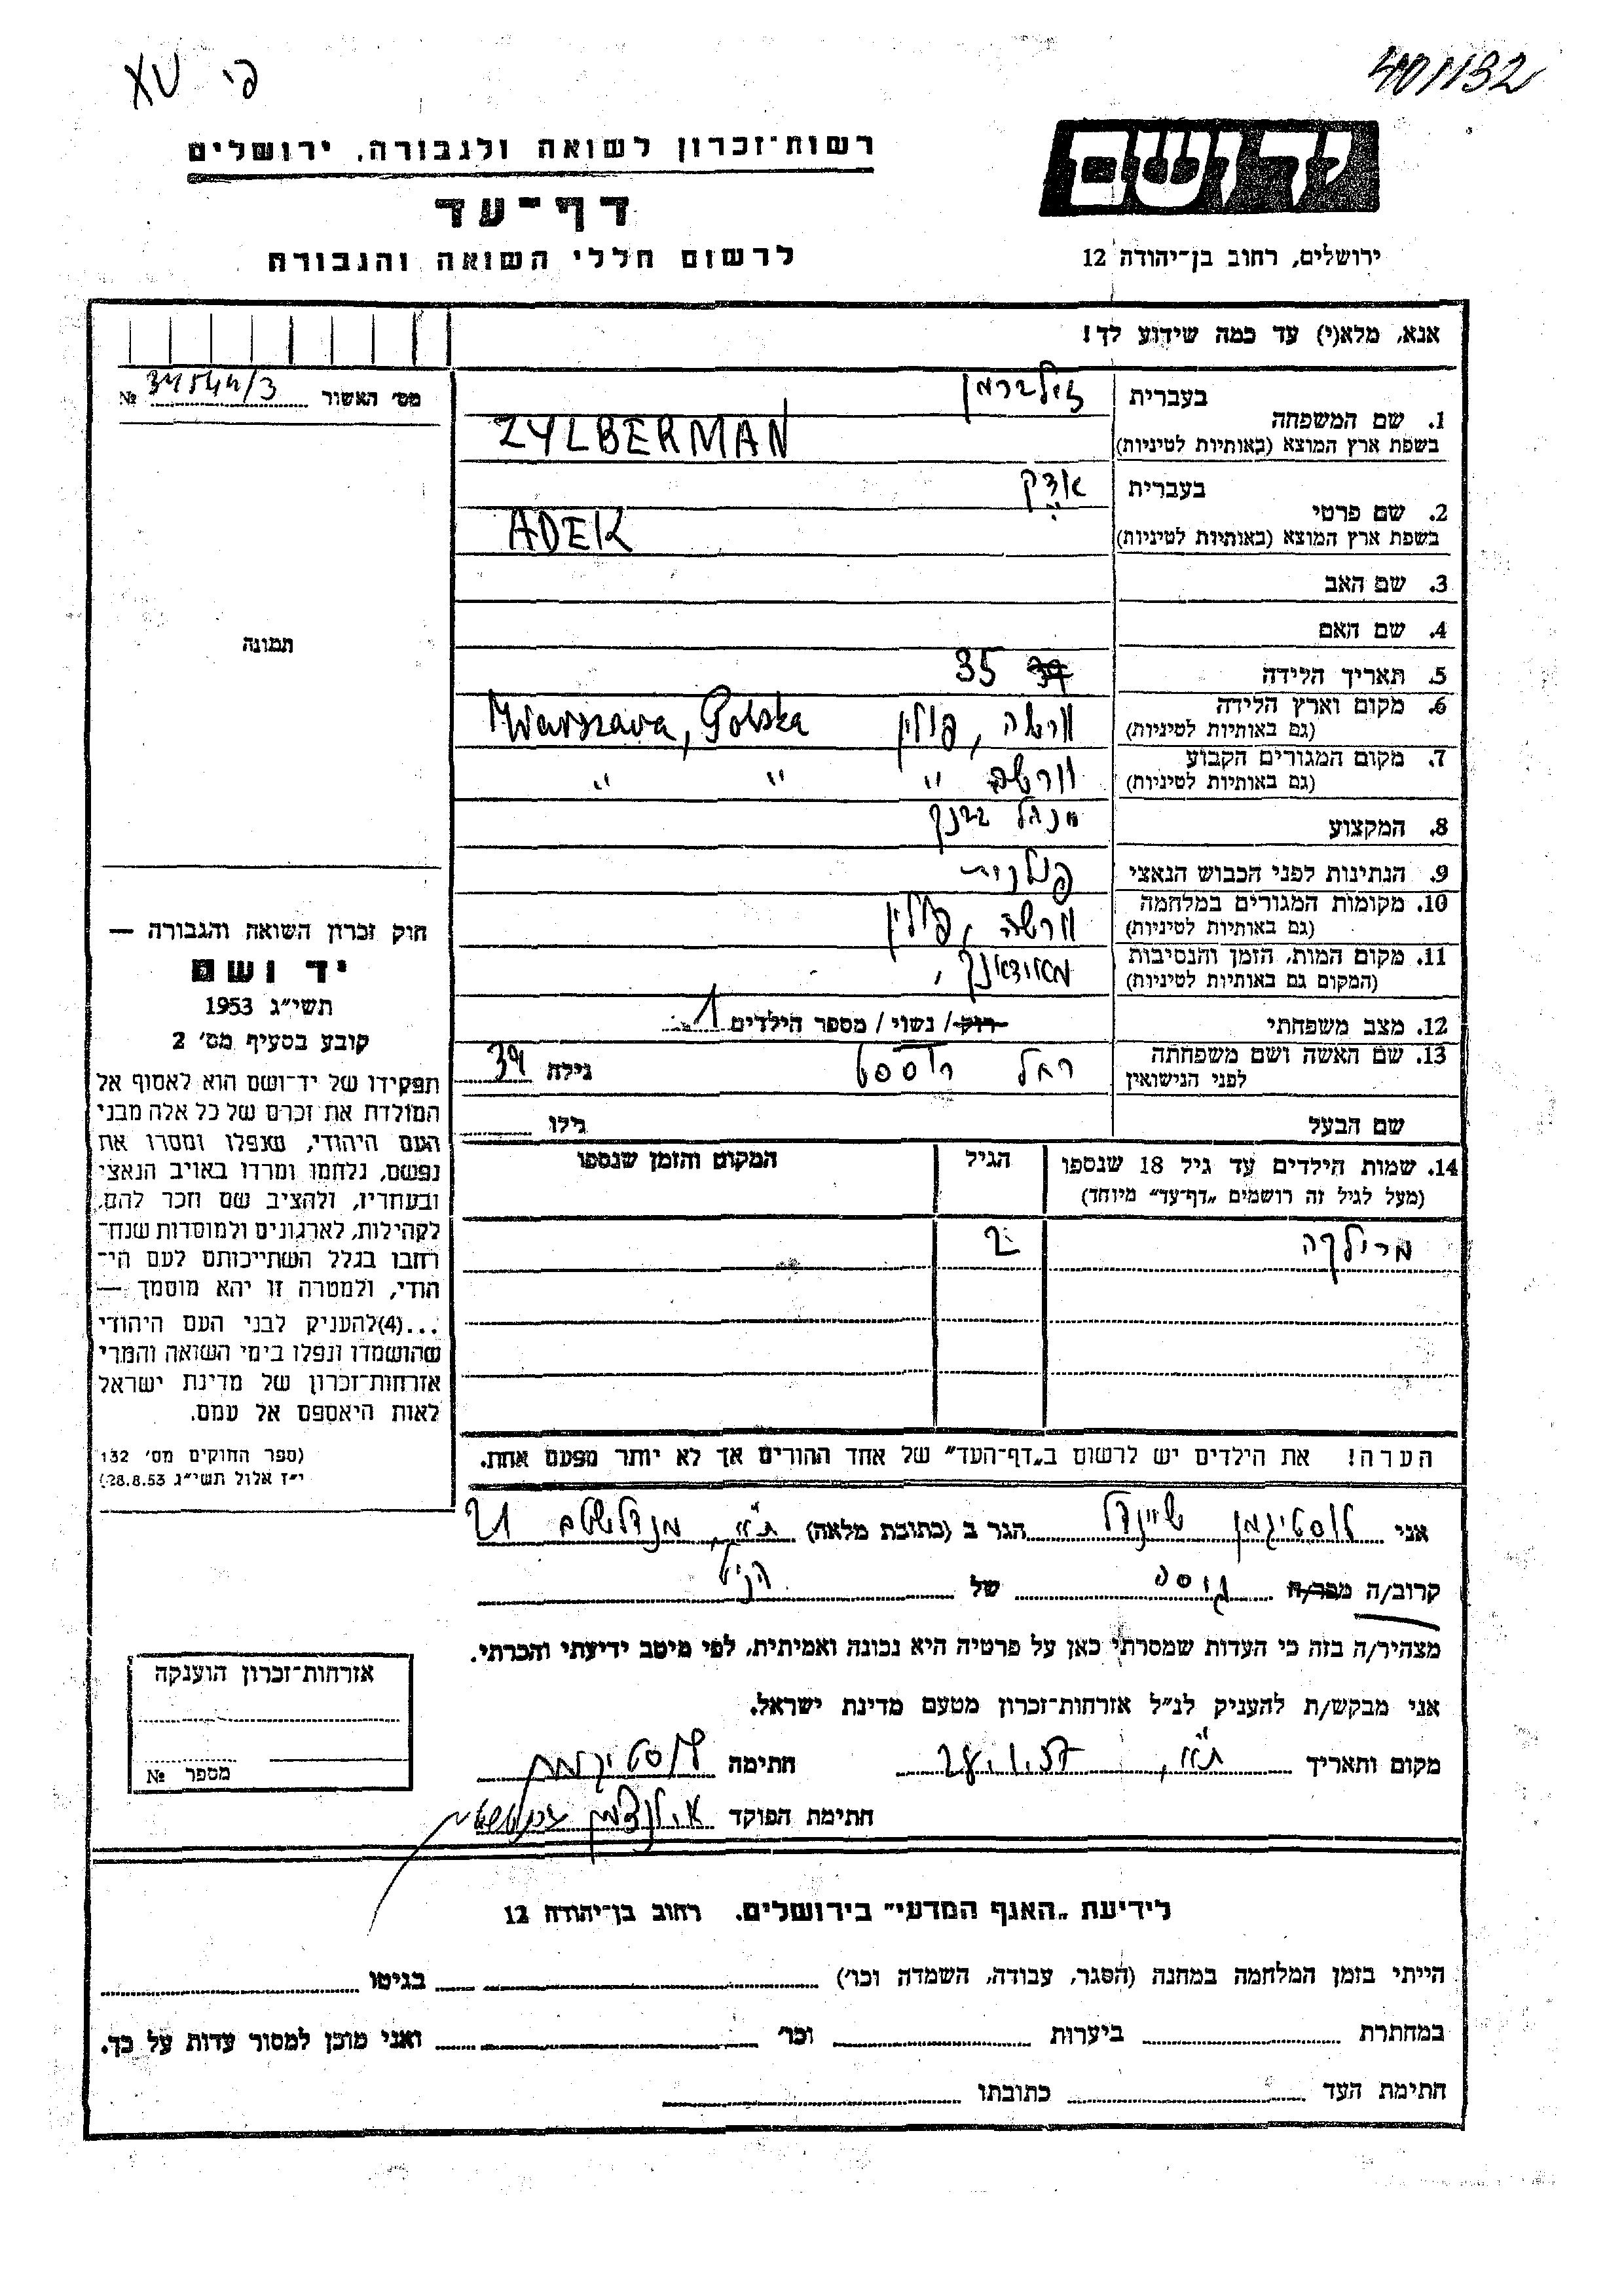 XV פי
401/132
רשות-זכרון לשואה ולגבורה, ירושלים
יד ושם
דף-עד
לרשום חללי השואה והגבורה
ירושלים, רחוב בן-יהודה 12
אנא, מלא(י) עד כמה שידוע לך!
מס' האשור № 31544/3
תמונה
חוק זכרון השואה והגבורה —
יד ושם
תשי"ג 1953
קובע בסעיף מס' 2
תפקידו של יד-ושם הוא לאסוף אל
המולדת את זכרם של כל אלה מבני
העם היהודי, שנפלו ומסרו את
נפשם, נלחמו ומרדו באויב הנאצי
ובעוזריו, ולהציב שם וזכר להם,
לקהילות, לארגונים ולמוסדות שנח-
רחבו בגלל השתייכותם לעם הי-
הודי, ולמטרה זו יהא מוסמך —
...(4)להעניק לבני העם היהודי
שהושמדו ונפלו בימי השואה והמרי
אזרחות-זכרון של מדינת ישראל
לאות היאספם אל עמם.
(ספר החוקים מס' 132
י"ז אלול תשי"ג 28.8.53)
1. שם המשפחה
בעברית זילברמן
בשפת ארץ המוצא (באותיות לטיניות) ZYLBERMAN
2. שם פרטי
בעברית אדק
בשפת ארץ המוצא (באותיות לטיניות) ADEK
3. שם האב
4. שם האם
5. תאריך הלידה 35
6. מקום וארץ הלידה ורשה, פולין Warszawa, Polska
(גם באותיות לטיניות)
7. מקום המגורים הקבוע ורשה " " "
(גם באותיות לטיניות)
8. המקצוע מנהל בנק
9. הנתינות לפני הכבוש הנאצי פולנית
10. מקומות המגורים במלחמה ורשה, פולין
(גם באותיות לטיניות)
11. מקום המות, הזמן והנסיבות מאידאנק,
(המקום גם באותיות לטיניות)
12. מצב משפחתי רוק/ נשוי / מספר הילדים 1
13. שם האשה ושם משפחתה רחל גילה 34
לפני הנישואין
שם הבעל גילו
14. שמות הילדים עד גיל 18 שנספו הגיל המקום והזמן שנספו
(מעל לגיל זה רושמים „דף-עד" מיוחד)
מרילקה 2
הערה! את הילדים יש לרשום ב„דף-העד" של אחד ההורים אך לא יותר מפעם אחת.
אני לוסטיגמן שיינדל הגר ב (כתובת מלאה) ת"א, מנדלשטם 21
קרוב/ה מכר/ה גיסה של הנ"ל
מצהיר/ה בזה כי העדות שמסרתי כאן על פרטיה היא נכונה ואמיתית, לפי מיטב ידיעתי והכרתי.
אני מבקש/ת להעניק לנ"ל אזרחות-זכרון מטעם מדינת ישראל.
מקום ותאריך ת"א, חתימה לוסטיגמן
חתימת הפוקד
אזרחות-זכרון הוענקה
מספר №
לידיעת „האגף המדעי" בירושלים. רחוב בן-יהודה 12
הייתי בזמן המלחמה במחנה (הסגר, עבודה, השמדה וכו') בגיטו
במחתרת ביערות וכו' ואני מוכן למסור עדות על כך.
חתימת העד כתובתו